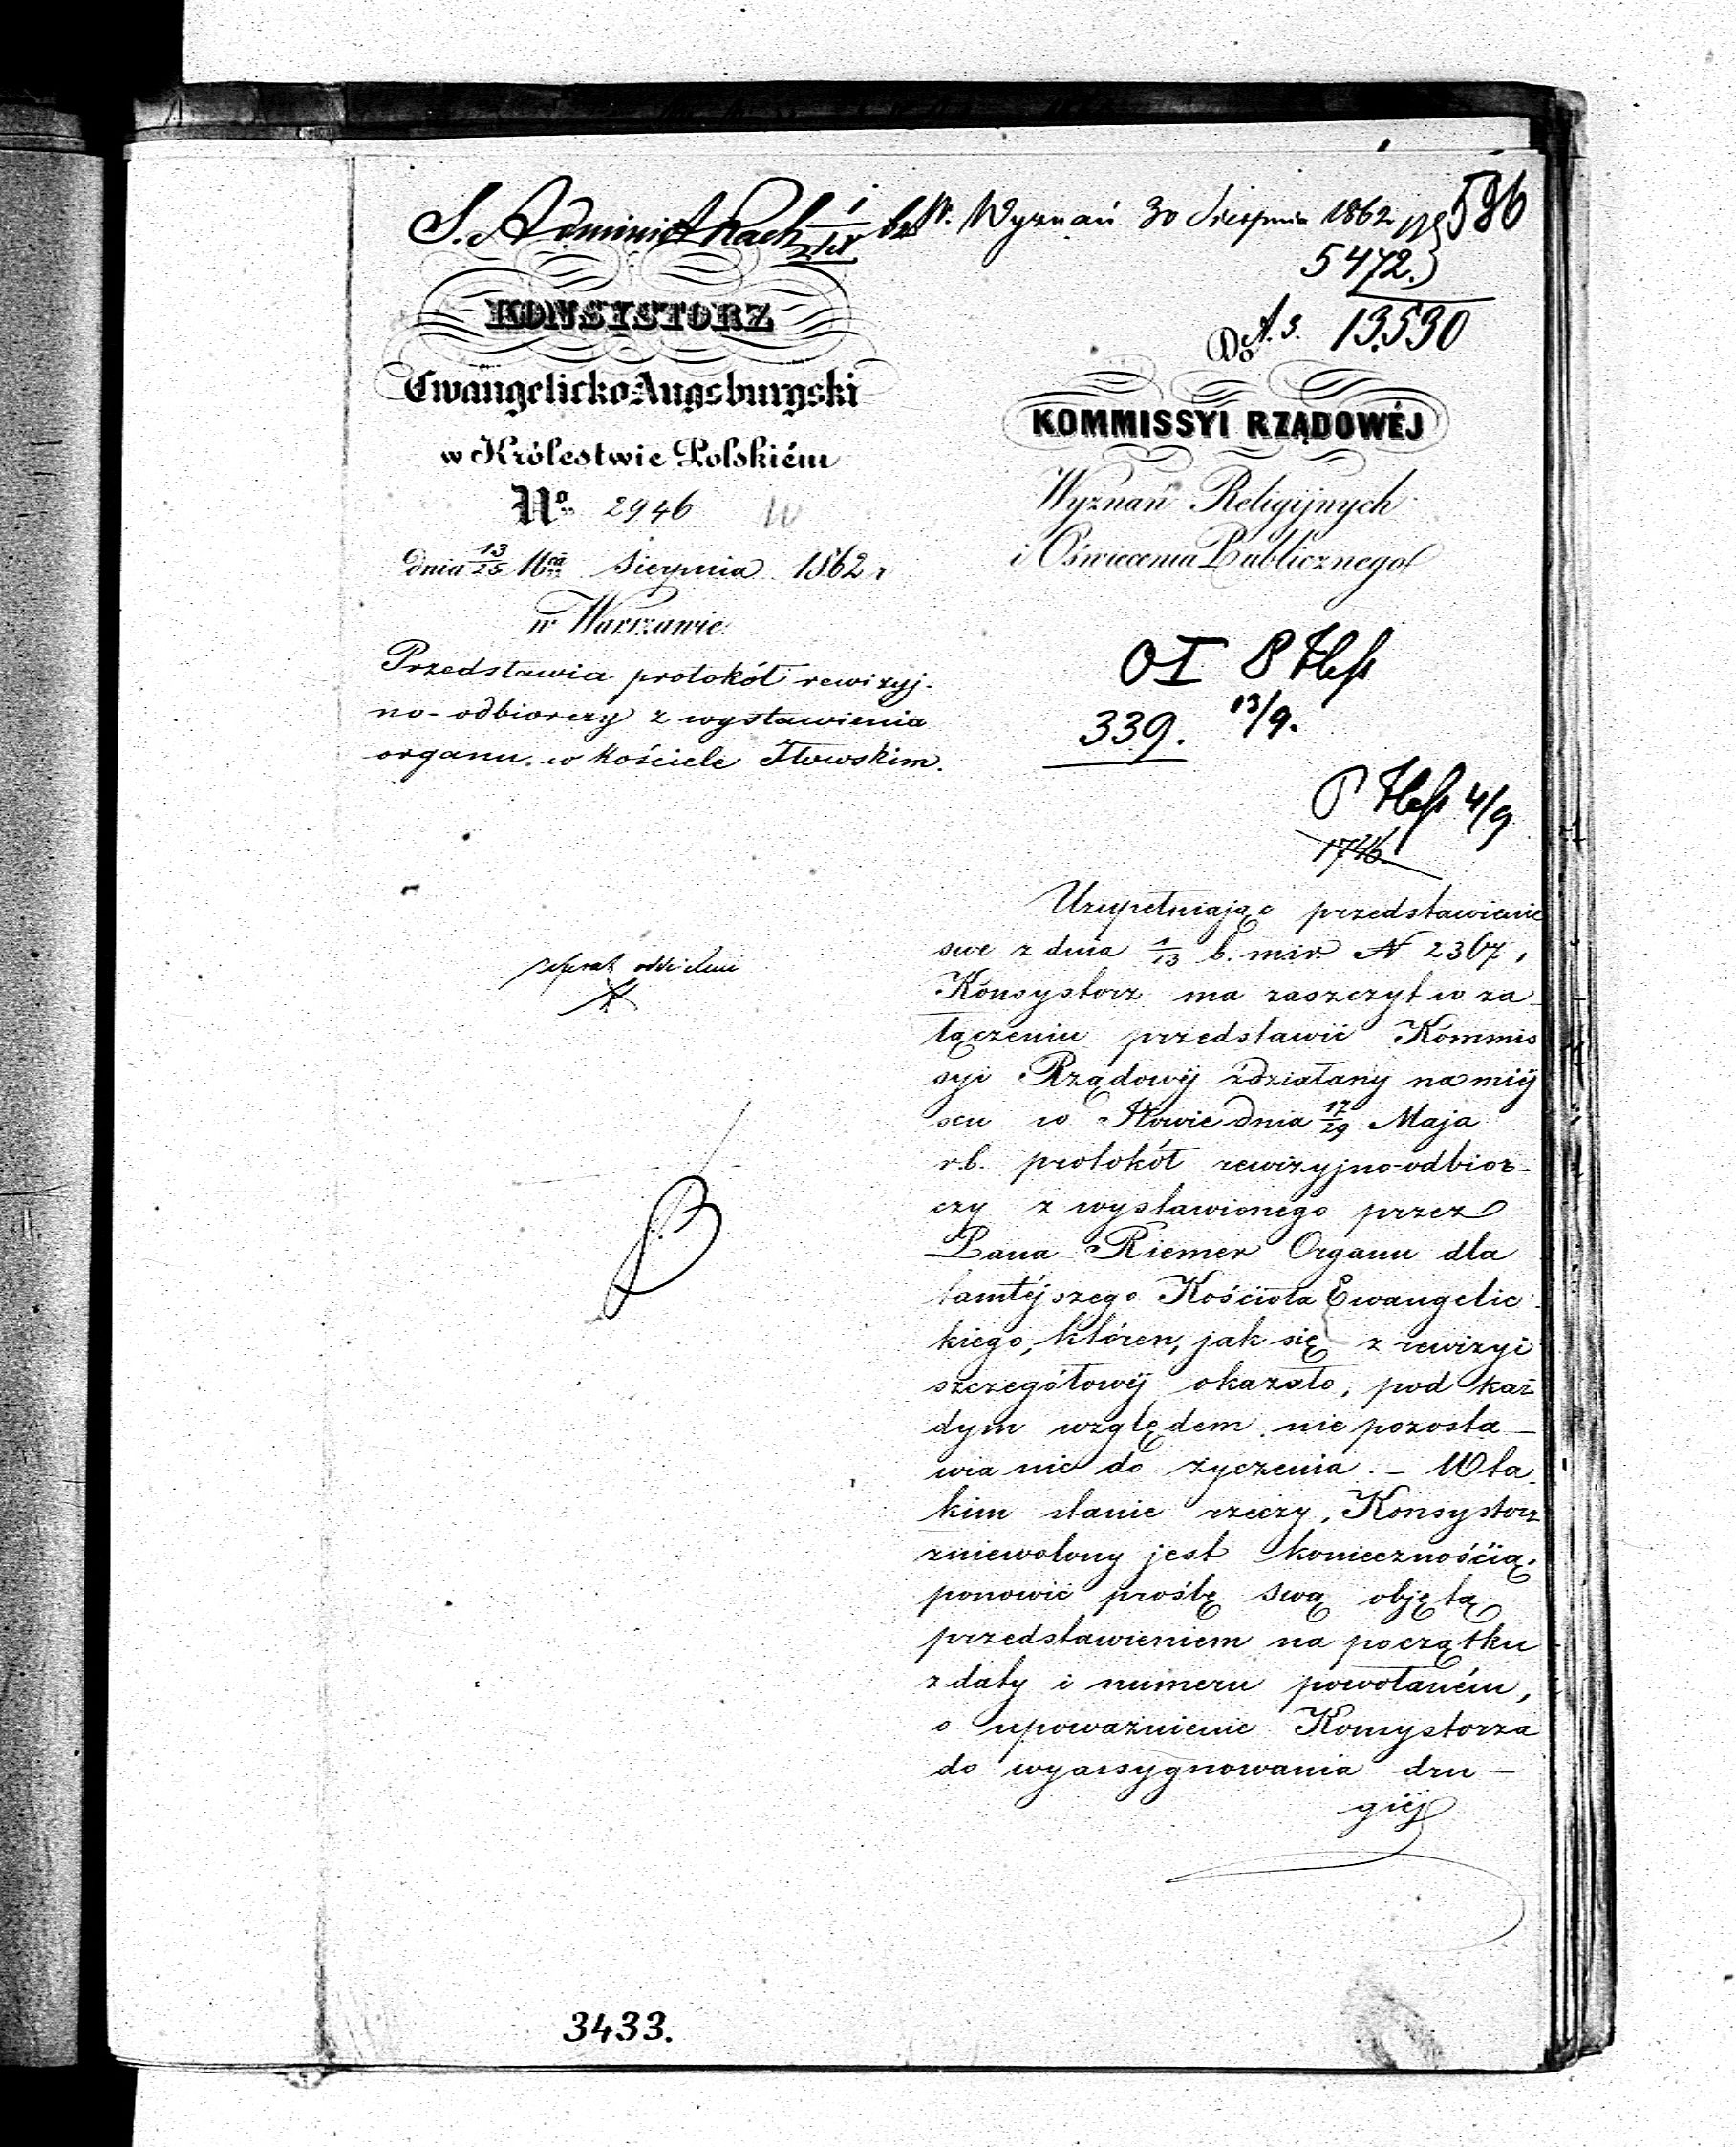 W. Wyznań 30 Sierpnia 1862
586
5472.
13.530
KONSYSTORZ
Ewangelicko-Augsburgski
w Królestwie Polskiém
No 2946
dnia 13/25 Mca Sierpnia 1862 r
w Warszawie.
Przedstawia protokół rewizyj-
no-odbiorczy z wystawienia
organu w kościele Iłowskim.
Do
KOMMISSYI RZĄDOWÉJ
Wyznań Religijnych
i Oświecenia Publicznego
OI 8
339. 13/9.
4/9
Uzupełniając przedstawienie
swe z dnia 1/13 b. m. i r. N 2367,
Konsystorz ma zaszczyt w za-
łączeniu przedstawić Kommis
syi Rządowéj zdziałany na miéj
scu w Iłowie dnia 17/29 Maja
r.b. protokół rewizyjno-odbior-
czy z wystawionego przez
Pana Riemer Organu dla
tamtéjszego Kościoła Ewangelic
kiego, któren, jak się z rewizyi
szczegółowéj okazało, pod każ
dym względem nie pozosta-
wia nic do życzenia. - W ta
kim stanie rzeczy, Konsystorz
zniewolony jest koniecznością
ponowić prośbę swą objętą
przedstawieniem na początku
z daty i numeru powołaném,
o upoważnienie Konsystorza
do wyassygnowania dru-
giéj
3433.